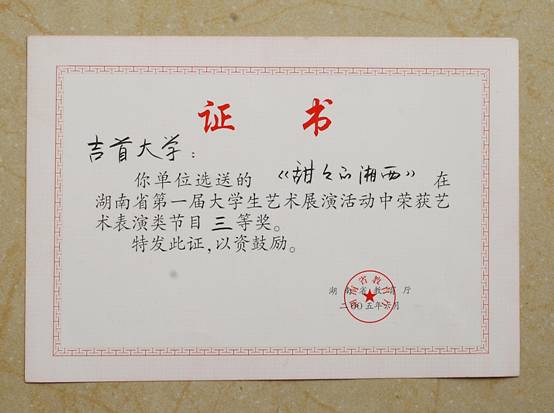 证 书
吉首大学：
你单位选送的《甜々的湘西》在
湖南省第一届大学生艺术展演活动中荣获艺
术表演类节目三等奖。
特发此证,以资鼓励。
湖南省教育厅
二〇〇五年六月